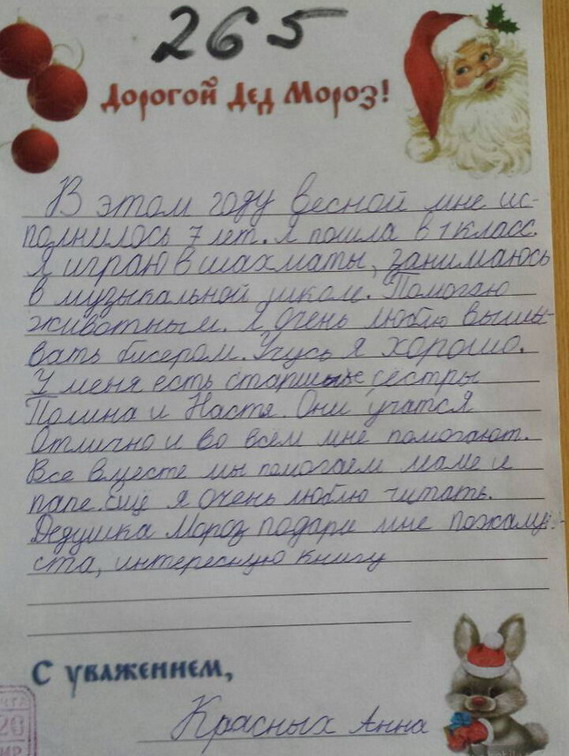 265
Дорогой Дед Мороз!
В этом году весной мне ис-
полнилось 7 лет. Я пошла в 1 класс.
Я играю в шахматы, занимаюсь
в музыкальной школ. Помогаю
животным. Я очень люблю выши-
вать бисером. Учусь я хорошо.
У меня есть старшые сёстры
Полина и Настя. Они учатся
Отлично и во всем мне помогают.
Все вместе мы помогаем маме и
папе. Ещё я очень люблю читать.
Дедушка Мороз подари мне пожалу-
ста, интересную книгу
С уважением,
Красных Анна
20